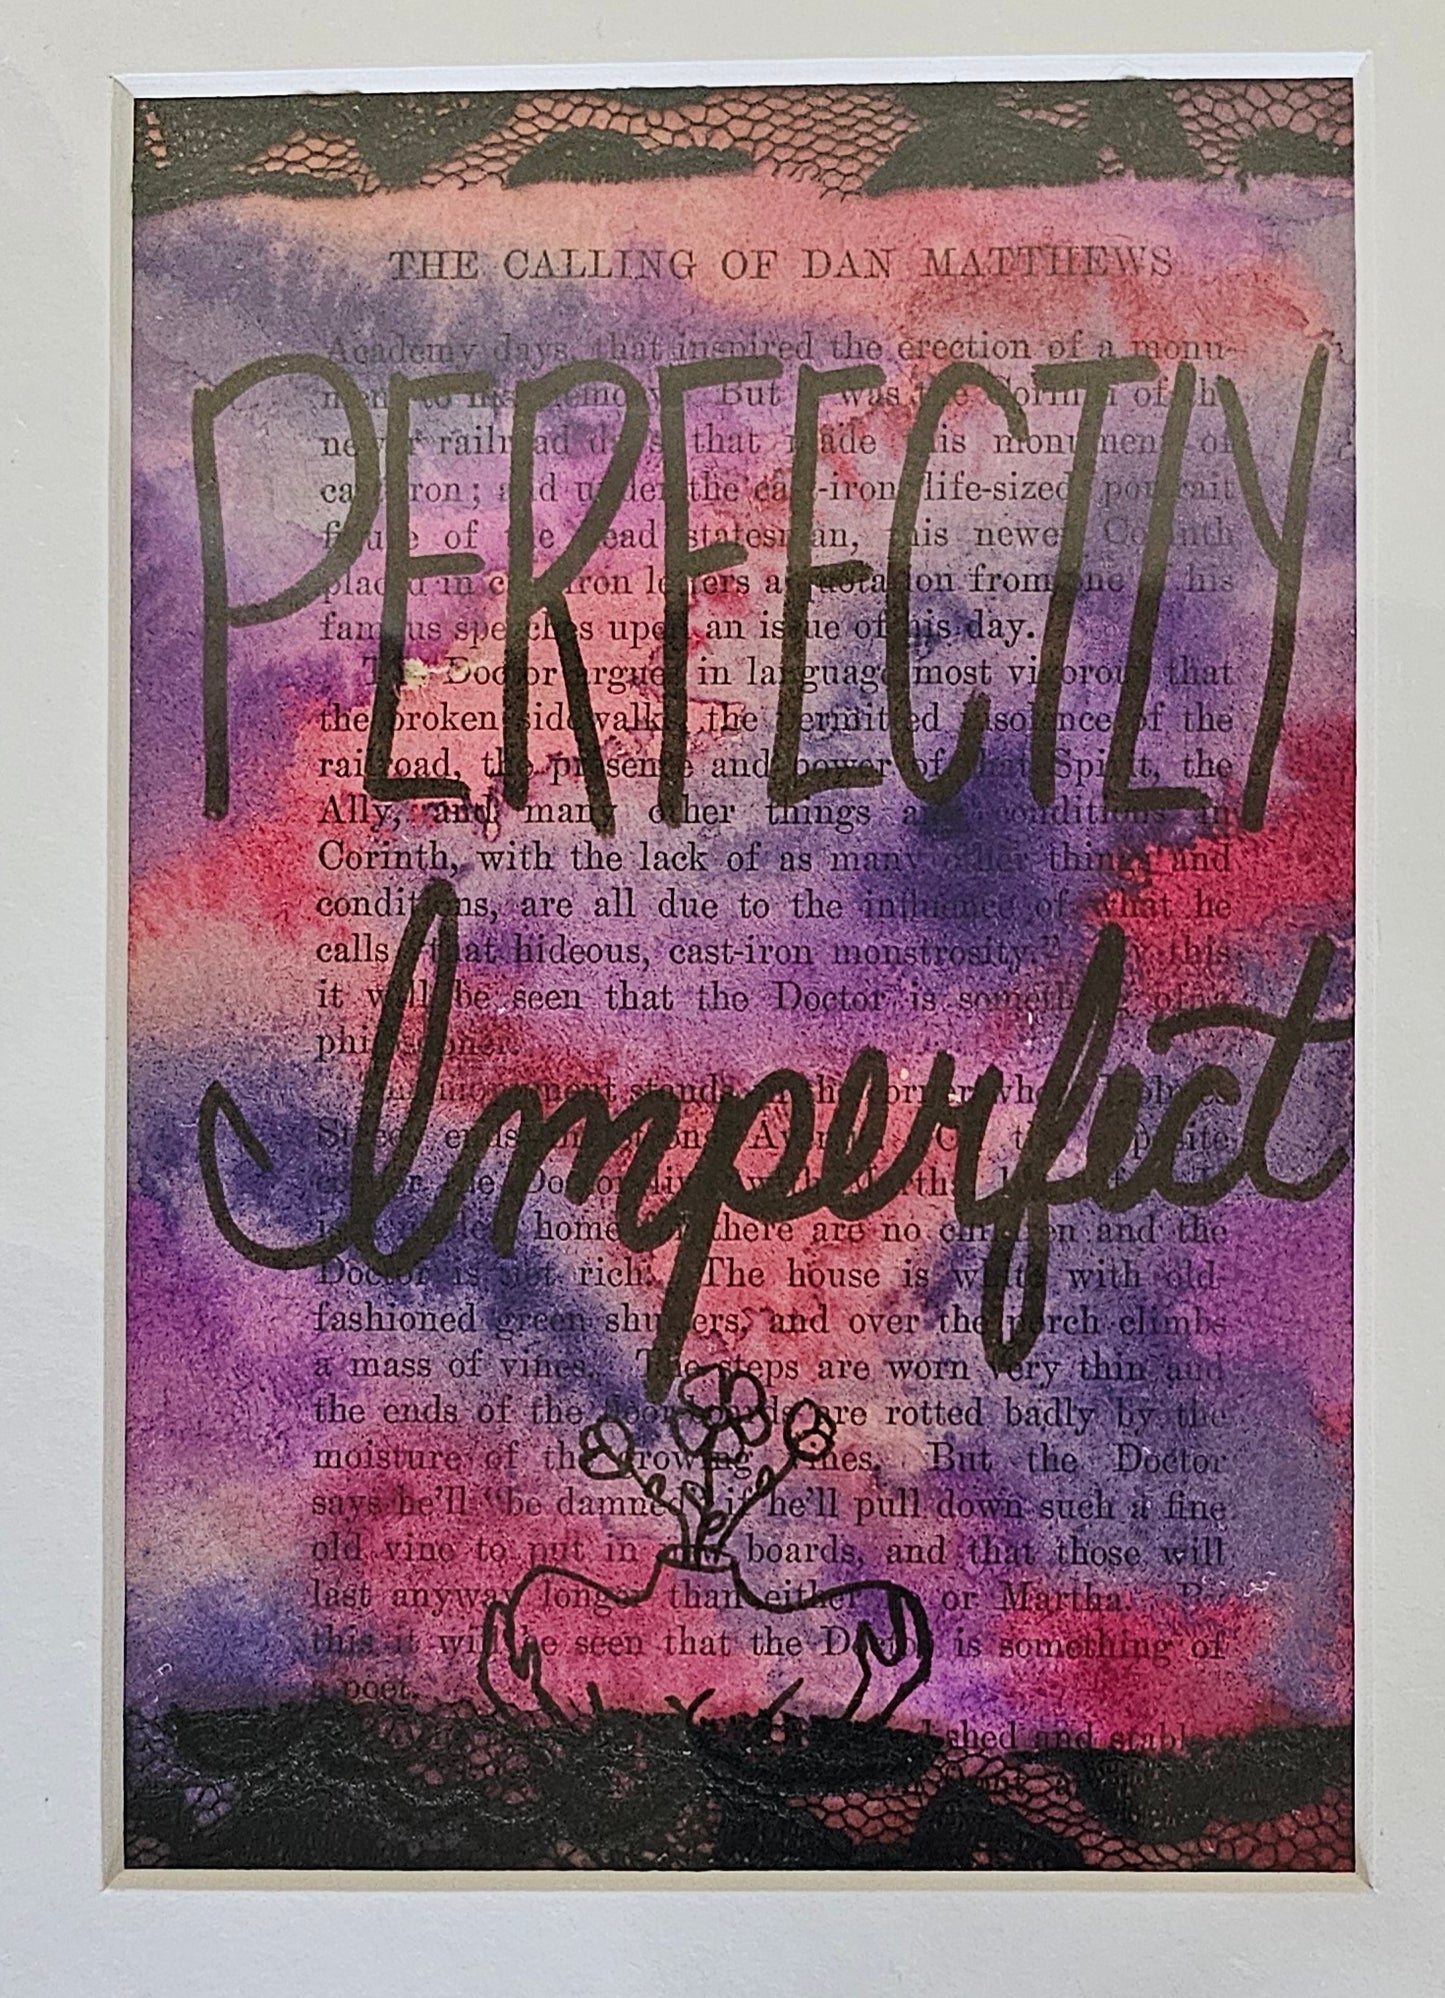 THE CALLING OF DAN MATTHEWS
Academy days, that inspired the erection of a monu-
PERFECTLY
ment to his memory. But was the Corinth of the
newer railroad days that made this monument of
cast-iron; and under the cast-iron life-sized portrait
figure of the dead statesman, this newer Corinth
placed in cast-iron letters a quotation from one of his
famous speeches upon an issue of his day.
The Doctor argues in language most vigorous that
the broken sidewalks, the permitted insolence of the
railroad, the presence and power of that Spirit, the
Ally, and many other things and conditions in
Corinth, with the lack of as many other things and
conditions, are all due to the influence of what he
calls "that hideous, cast-iron monstrosity." By this
it will be seen that the Doctor is something of a
philosopher.
Imperfect
The monument stands on the corner where
Street ends in Avenue. On the opposite
corner the Doctor lives with Martha,
home for there are no children and the
Doctor is not rich. The house is white with old-
fashioned green shutters, and over the porch climbs
a mass of vines. The steps are worn very thin and
the ends of the floor-boards are rotted badly by the
moisture of the growing vines. But the Doctor
says he'll "be damned" if he'll pull down such a fine
old vine to put in new boards, and that those will
last anyway longer than either he or Martha. By
this it will be seen that the Doctor is something of
a poet.